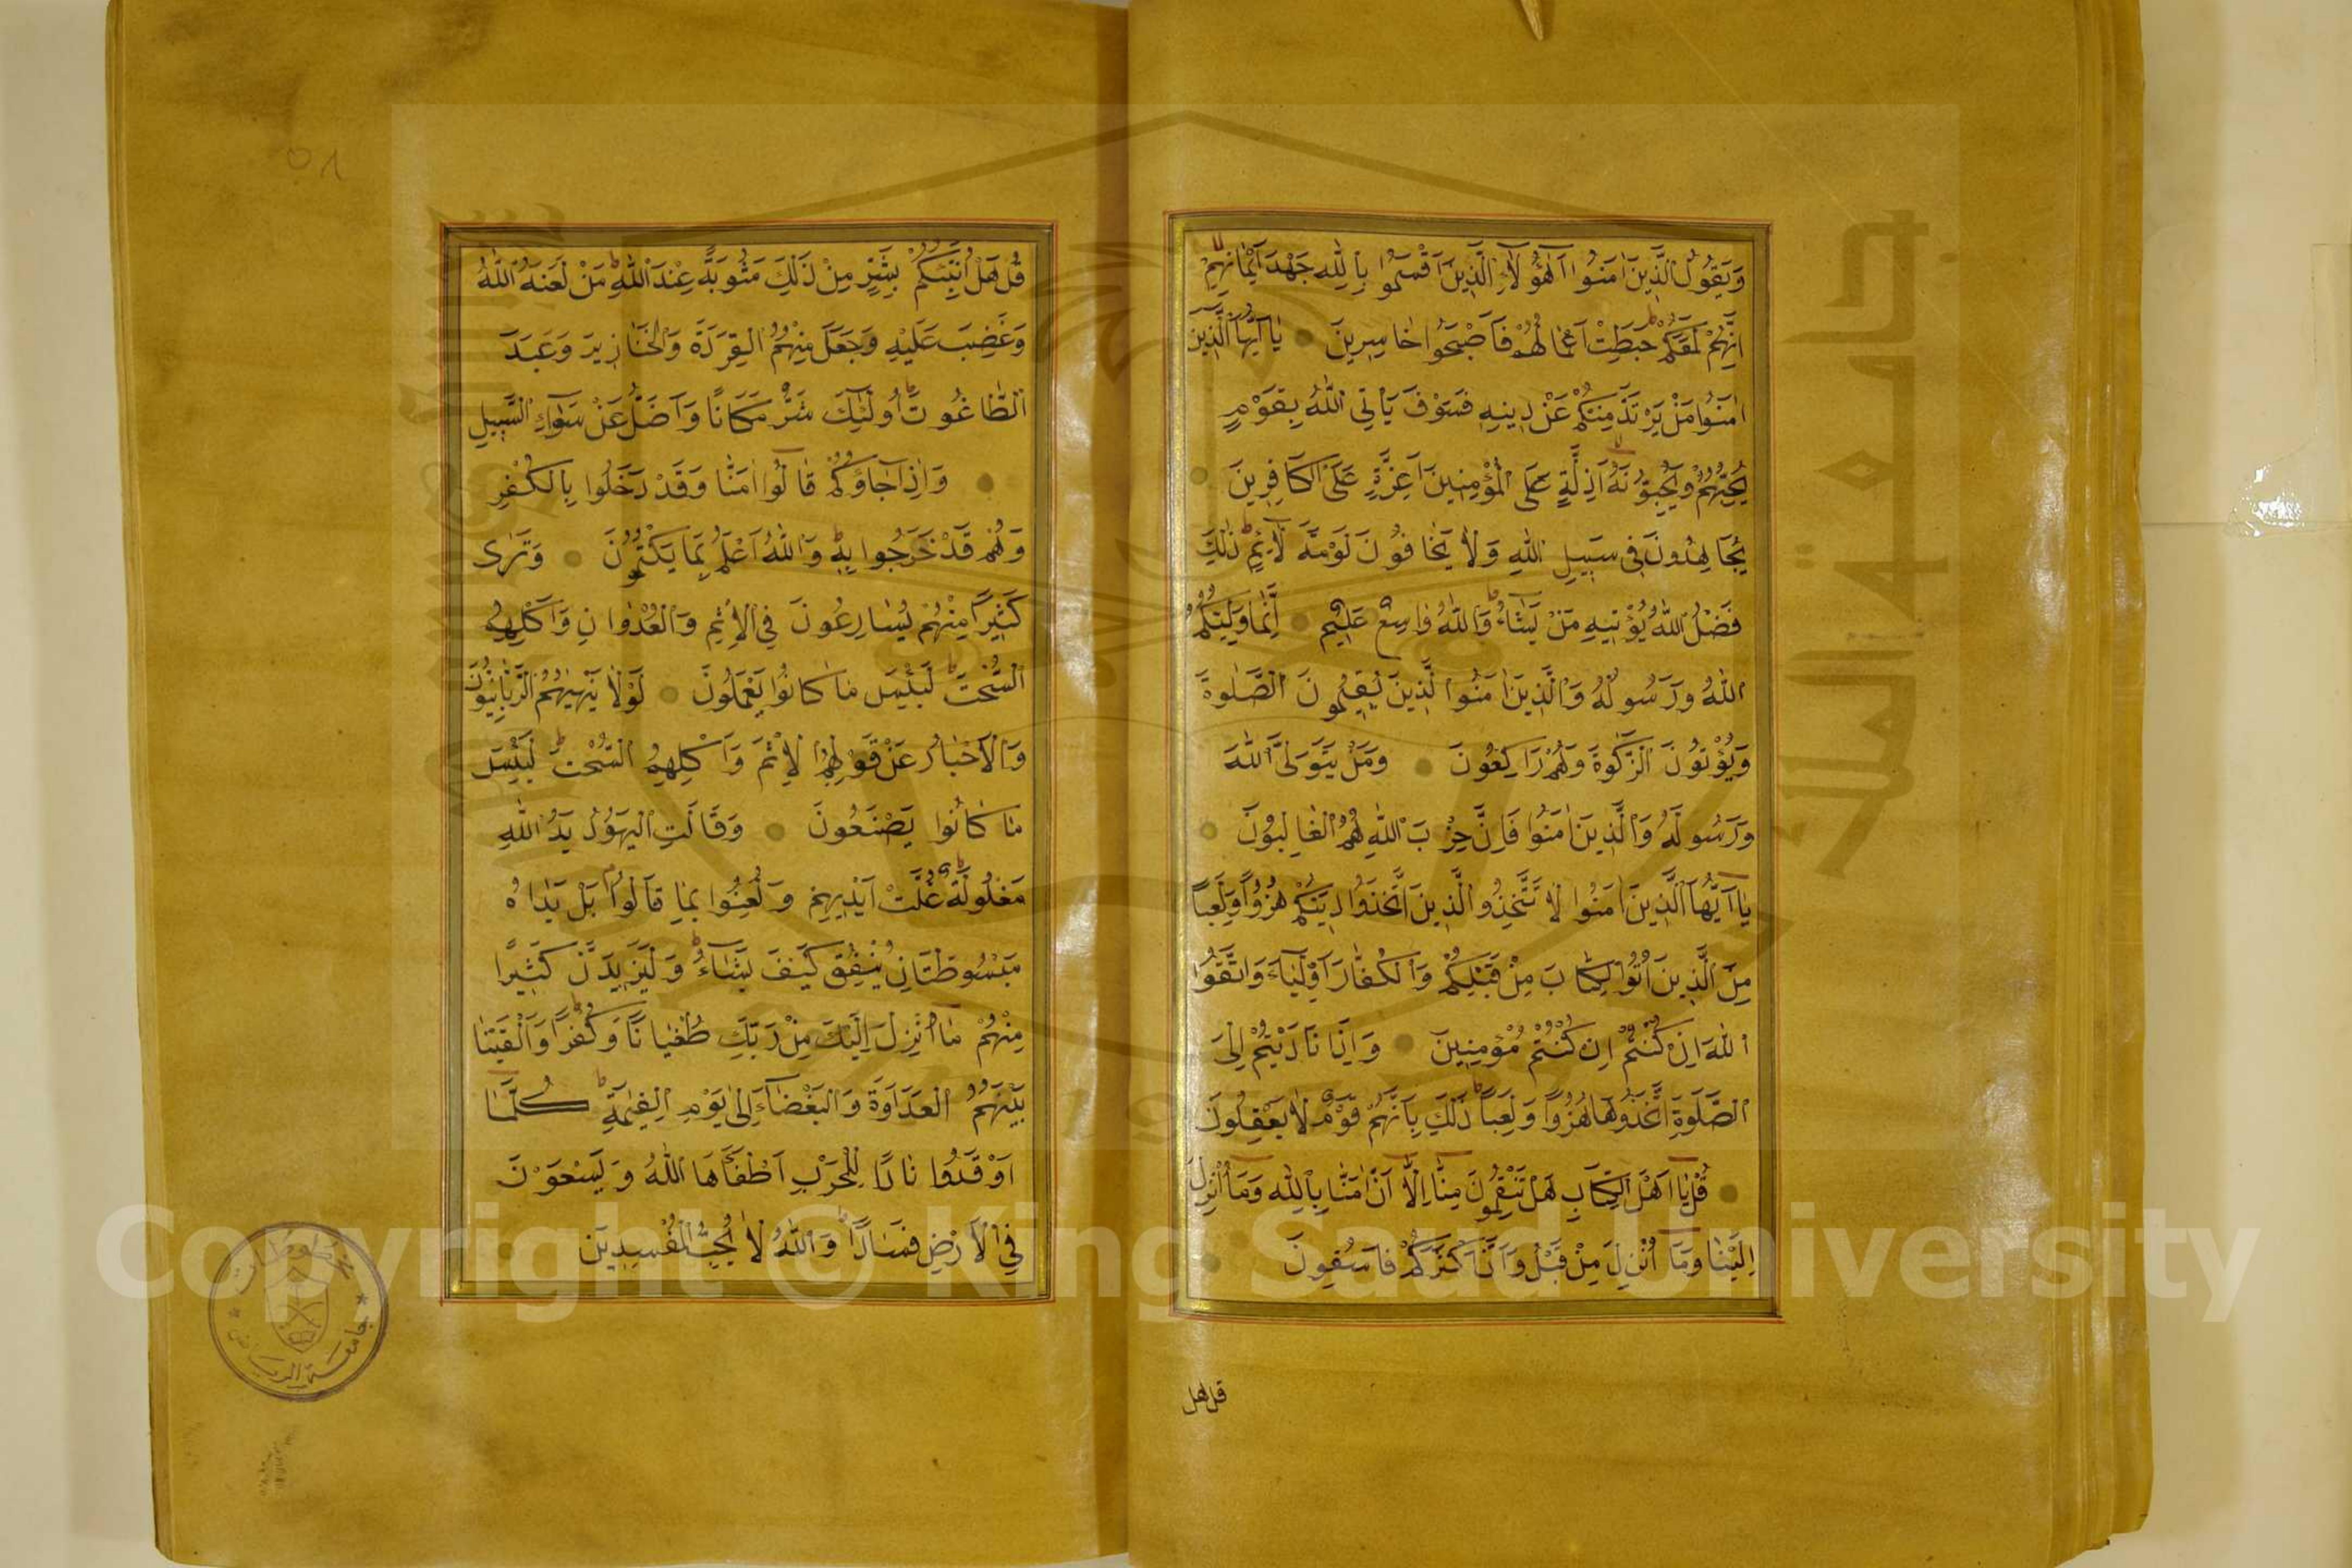 وَيَقُولُ الَّذِينَ اٰمَنُوا اَهٰؤُلَاءِ الَّذِينَ اَقْسَمُوا بِاللّٰهِ جَهْدَ اَيْمَانِهِمْ
اِنَّهُمْ لَمَعَكُمْ حَبِطَتْ اَعْمَالُهُمْ فَاَصْبَحُوا خَاسِرِينَ يَا اَيُّهَا الَّذِينَ
اٰمَنُوا مَنْ يَرْتَدَّ مِنْكُمْ عَنْ دِينِهِ فَسَوْفَ يَأْتِي اللّٰهُ بِقَوْمٍ
يُحِبُّهُمْ وَيُحِبُّونَهُ اَذِلَّةٍ عَلَى الْمُؤْمِنِينَ اَعِزَّةٍ عَلَى الْكَافِرِينَ
يُجَاهِدُونَ فِي سَبِيلِ اللّٰهِ وَلَا يَخَافُونَ لَوْمَةَ لَائِمٍ ذٰلِكَ
فَضْلُ اللّٰهِ يُؤْتِيهِ مَنْ يَشَاءُ وَاللّٰهُ وَاسِعٌ عَلِيمٌ اِنَّمَا وَلِيُّكُمُ
اللّٰهُ وَرَسُولُهُ وَالَّذِينَ اٰمَنُوا الَّذِينَ يُقِيمُونَ الصَّلٰوةَ
وَيُؤْتُونَ الزَّكٰوةَ وَهُمْ رَاكِعُونَ وَمَنْ يَتَوَلَّ اللّٰهَ
وَرَسُولَهُ وَالَّذِينَ اٰمَنُوا فَاِنَّ حِزْبَ اللّٰهِ هُمُ الْغَالِبُونَ
يَا اَيُّهَا الَّذِينَ اٰمَنُوا لَا تَتَّخِذُوا الَّذِينَ اتَّخَذُوا دِينَكُمْ هُزُوًا وَلَعِبًا
مِنَ الَّذِينَ اُوتُوا الْكِتَابَ مِنْ قَبْلِكُمْ وَالْكُفَّارَ اَوْلِيَاءَ وَاتَّقُوا
اللّٰهَ اِنْ كُنْتُمْ اِنْ كُنْتُمْ مُؤْمِنِينَ وَاِذَا نَادَيْتُمْ اِلَى
الصَّلٰوةِ اتَّخَذُوهَا هُزُوًا وَلَعِبًا ذٰلِكَ بِاَنَّهُمْ قَوْمٌ لَا يَعْقِلُونَ
قُلْ يَا اَهْلَ الْكِتَابِ هَلْ تَنْقِمُونَ مِنَّا اِلَّا اَنْ اٰمَنَّا بِاللّٰهِ وَمَا اُنْزِلَ
اِلَيْنَا وَمَا اُنْزِلَ مِنْ قَبْلُ وَاَنَّ اَكْثَرَكُمْ فَاسِقُونَ
قل هل
٥٨
قُلْ هَلْ اُنَبِّئُكُمْ بِشَرٍّ مِنْ ذٰلِكَ مَثُوبَةً عِنْدَ اللّٰهِ مَنْ لَعَنَهُ اللّٰهُ
وَغَضِبَ عَلَيْهِ وَجَعَلَ مِنْهُمُ الْقِرَدَةَ وَالْخَنَازِيرَ وَعَبَدَ
الطَّاغُوتَ اُولٰئِكَ شَرٌّ مَكَانًا وَاَضَلُّ عَنْ سَوَاءِ السَّبِيلِ
وَاِذَا جَاؤُكُمْ قَالُوا اٰمَنَّا وَقَدْ دَخَلُوا بِالْكُفْرِ
وَهُمْ قَدْ خَرَجُوا بِهِ وَاللّٰهُ اَعْلَمُ بِمَا يَكْتُمُونَ وَتَرٰى
كَثِيرًا مِنْهُمْ يُسَارِعُونَ فِي الْاِثْمِ وَالْعُدْوَانِ وَاَكْلِهِمُ
السُّحْتَ لَبِئْسَ مَا كَانُوا يَعْمَلُونَ لَوْلَا يَنْهٰيهُمُ الرَّبَّانِيُّونَ
وَالْاَحْبَارُ عَنْ قَوْلِهِمُ الْاِثْمَ وَاَكْلِهِمُ السُّحْتَ لَبِئْسَ
مَا كَانُوا يَصْنَعُونَ وَقَالَتِ الْيَهُودُ يَدُ اللّٰهِ
مَغْلُولَةٌ غُلَّتْ اَيْدِيهِمْ وَلُعِنُوا بِمَا قَالُوا بَلْ يَدَاهُ
مَبْسُوطَتَانِ يُنْفِقُ كَيْفَ يَشَاءُ وَلَيَزِيدَنَّ كَثِيرًا
مِنْهُمْ مَا اُنْزِلَ اِلَيْكَ مِنْ رَبِّكَ طُغْيَانًا وَكُفْرًا وَاَلْقَيْنَا
بَيْنَهُمُ الْعَدَاوَةَ وَالْبَغْضَاءَ اِلٰى يَوْمِ الْقِيٰمَةِ كُلَّمَا
اَوْقَدُوا نَارًا لِلْحَرْبِ اَطْفَاَهَا اللّٰهُ وَيَسْعَوْنَ
فِي الْاَرْضِ فَسَادًا وَاللّٰهُ لَا يُحِبُّ الْمُفْسِدِينَ
جامعة الرياض
مخطوطات
Copyright © King Saud University